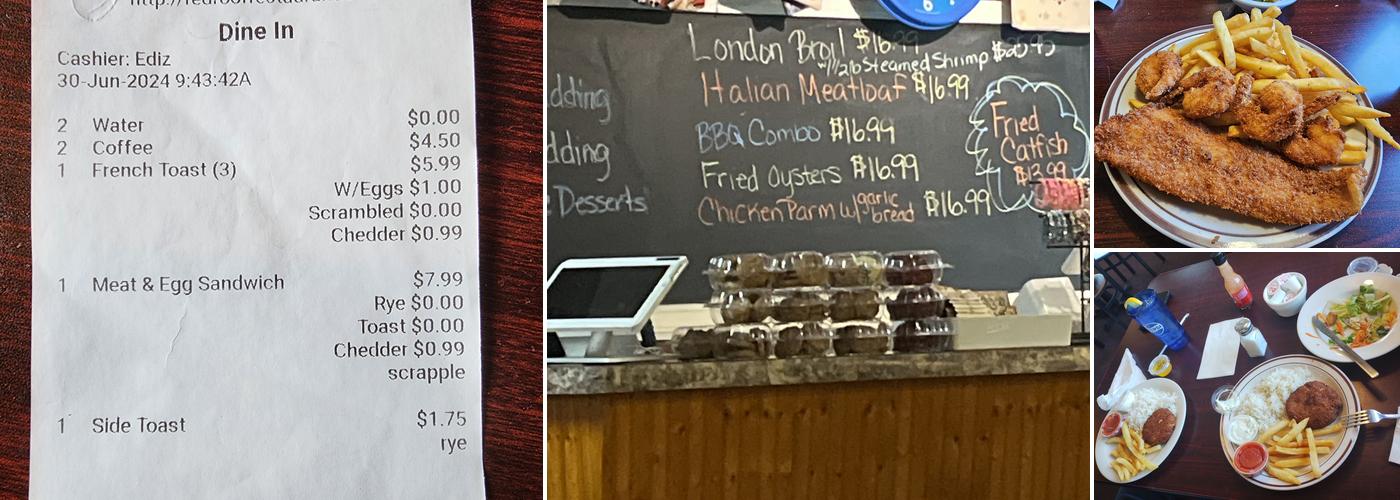 Dine In
Cashier: Ediz
30-Jun-2024 9:43:42A
2 Water $0.00
2 Coffee $4.50
1 French Toast (3) $5.99
W/Eggs $1.00
Scrambled $0.00
Chedder $0.99
1 Meat & Egg Sandwich $7.99
Rye $0.00
Toast $0.00
Chedder $0.99
scrapple
1 Side Toast $1.75
rye
London Broil $16.99
w/ 1/2 lb Steamed Shrimp
Italian Meatloaf $16.99
BBQ Combo $16.99
Fried Oysters $16.99
Chicken Parm w/ garlic bread $16.99
Fried
Catfish
$13.99
Desserts